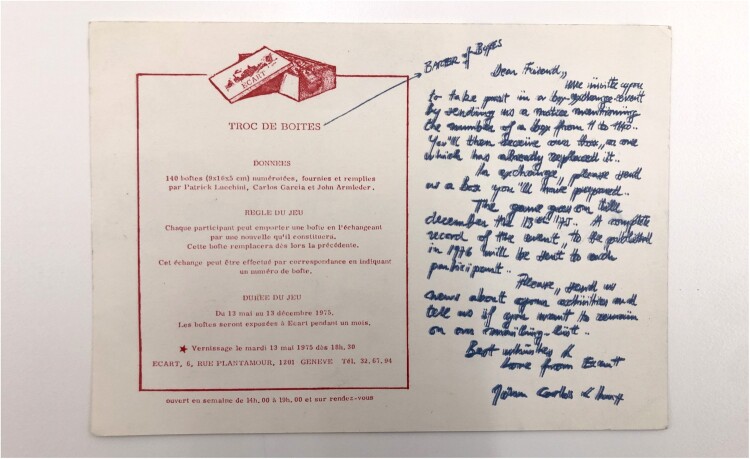 ECART
TROC DE BOITES
DONNEES
140 boîtes (9x16x5 cm) numérotées, fournies et remplies
par Patrick Lucchini, Carlos Garcia et John Armleder.
REGLE DU JEU
Chaque participant peut emporter une boîte en l'échangeant
par une nouvelle qu'il constituera.
Cette boîte remplacera dès lors la précédente.
Cet échange peut être effectué par correspondance en indiquant
un numéro de boîte.
DURÉE DU JEU
Du 13 mai au 13 décembre 1975.
Les boîtes seront exposées à Ecart pendant un mois.
★ Vernissage le mardi 13 mai 1975 dès 18h.30
ECART, 6, RUE PLANTAMOUR, 1201 GENEVE TÉL. 32.67.94
ouvert en semaine de 14h.00 à 19h.00 et sur rendez-vous
BARTER of BOXES
Dear Friend,,
We invite you
to take part in a box-exchange-event
by sending us a notice mentioning
the number of a box from 1 to 140..
You'll then receive our box, or one
which has already replaced it..
In exchange, please send
us a box you'll have prepared..
The game goes on till
december the 13rd '75.. A complete
record of the event, to be published
in 1976 will be sent to each
participant..
Please,, send us
news about your activities and
tell us if you want to remain
on our mailing-list..
Best wishes &
love from Ecart
John Carlos &